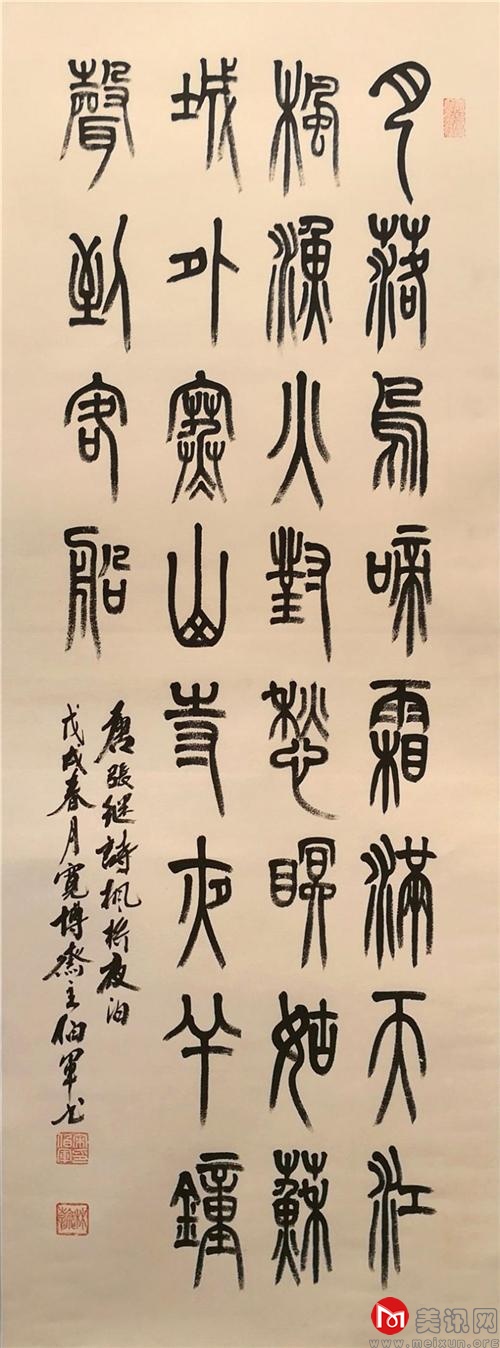 月落烏啼霜滿天江
楓漁火對愁眠姑蘇
城外寒山寺夜半鐘
聲到客船
唐張继詩楓橋夜泊
戊戌春月寬博齋主伯軍书
美讯网
www.meixun.org